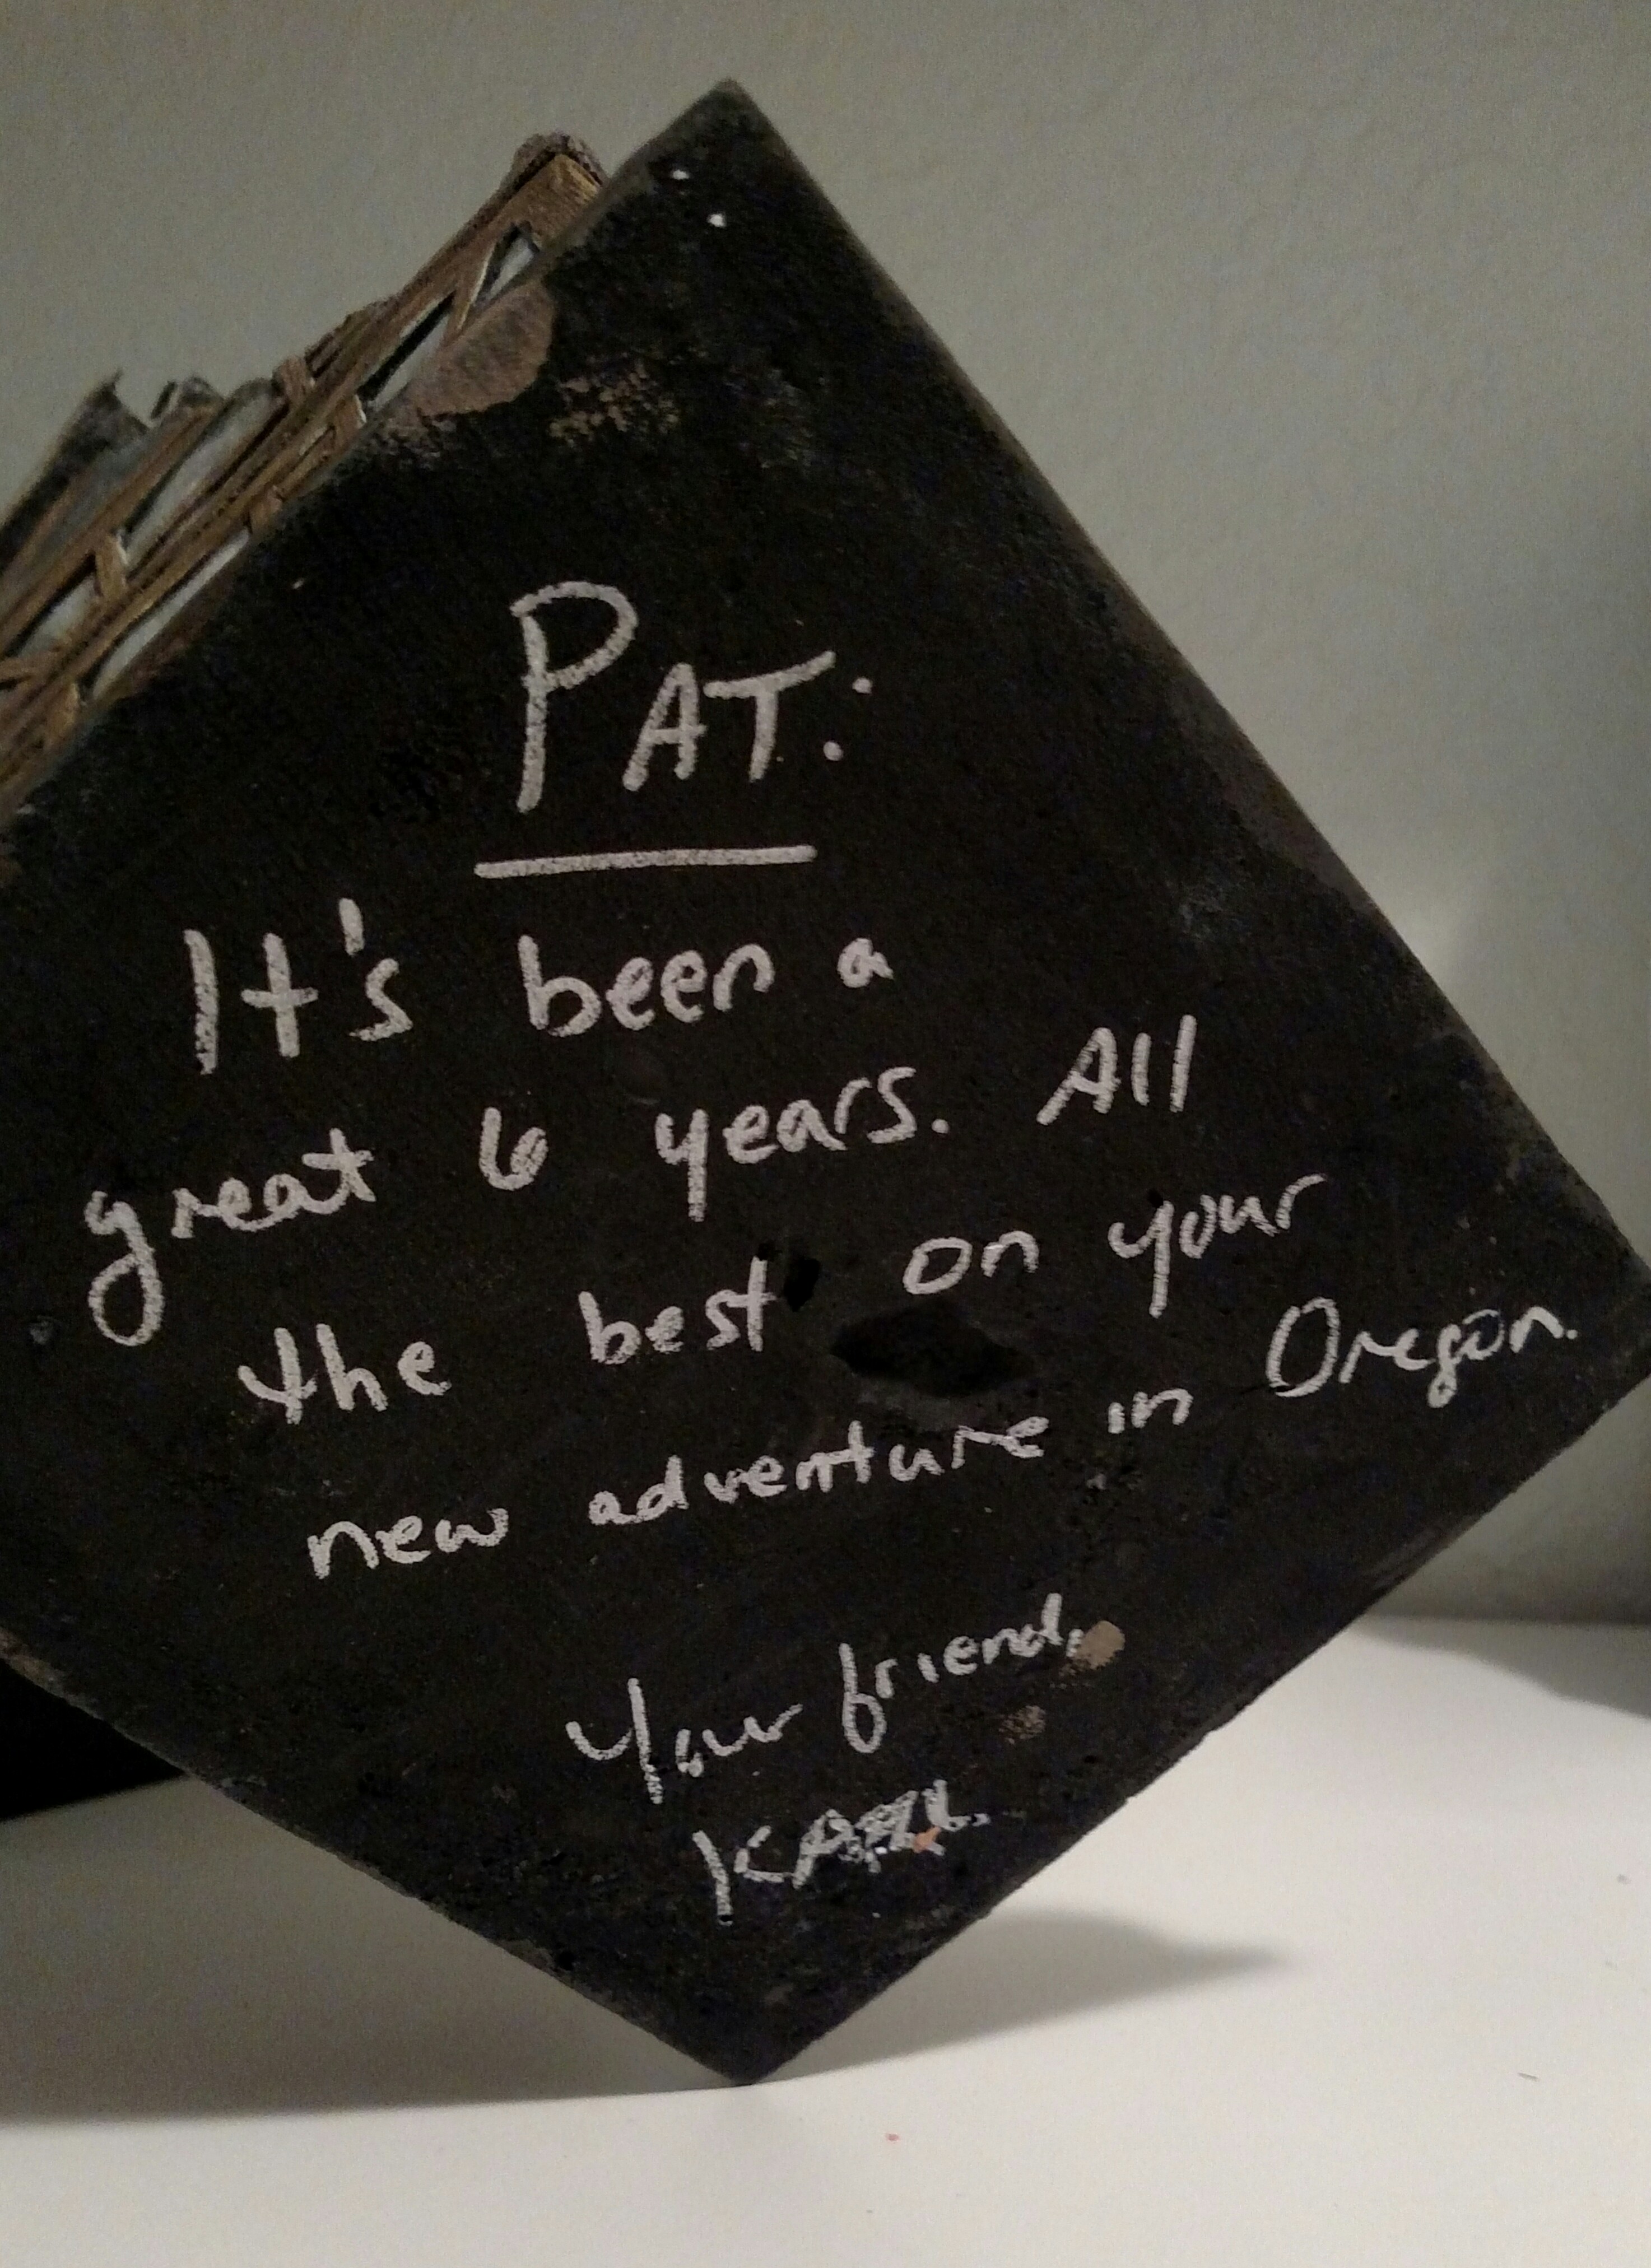 PAT:
It's been a
great 6 years. All
the best on your
new adventure in Oregon.
Your friend,